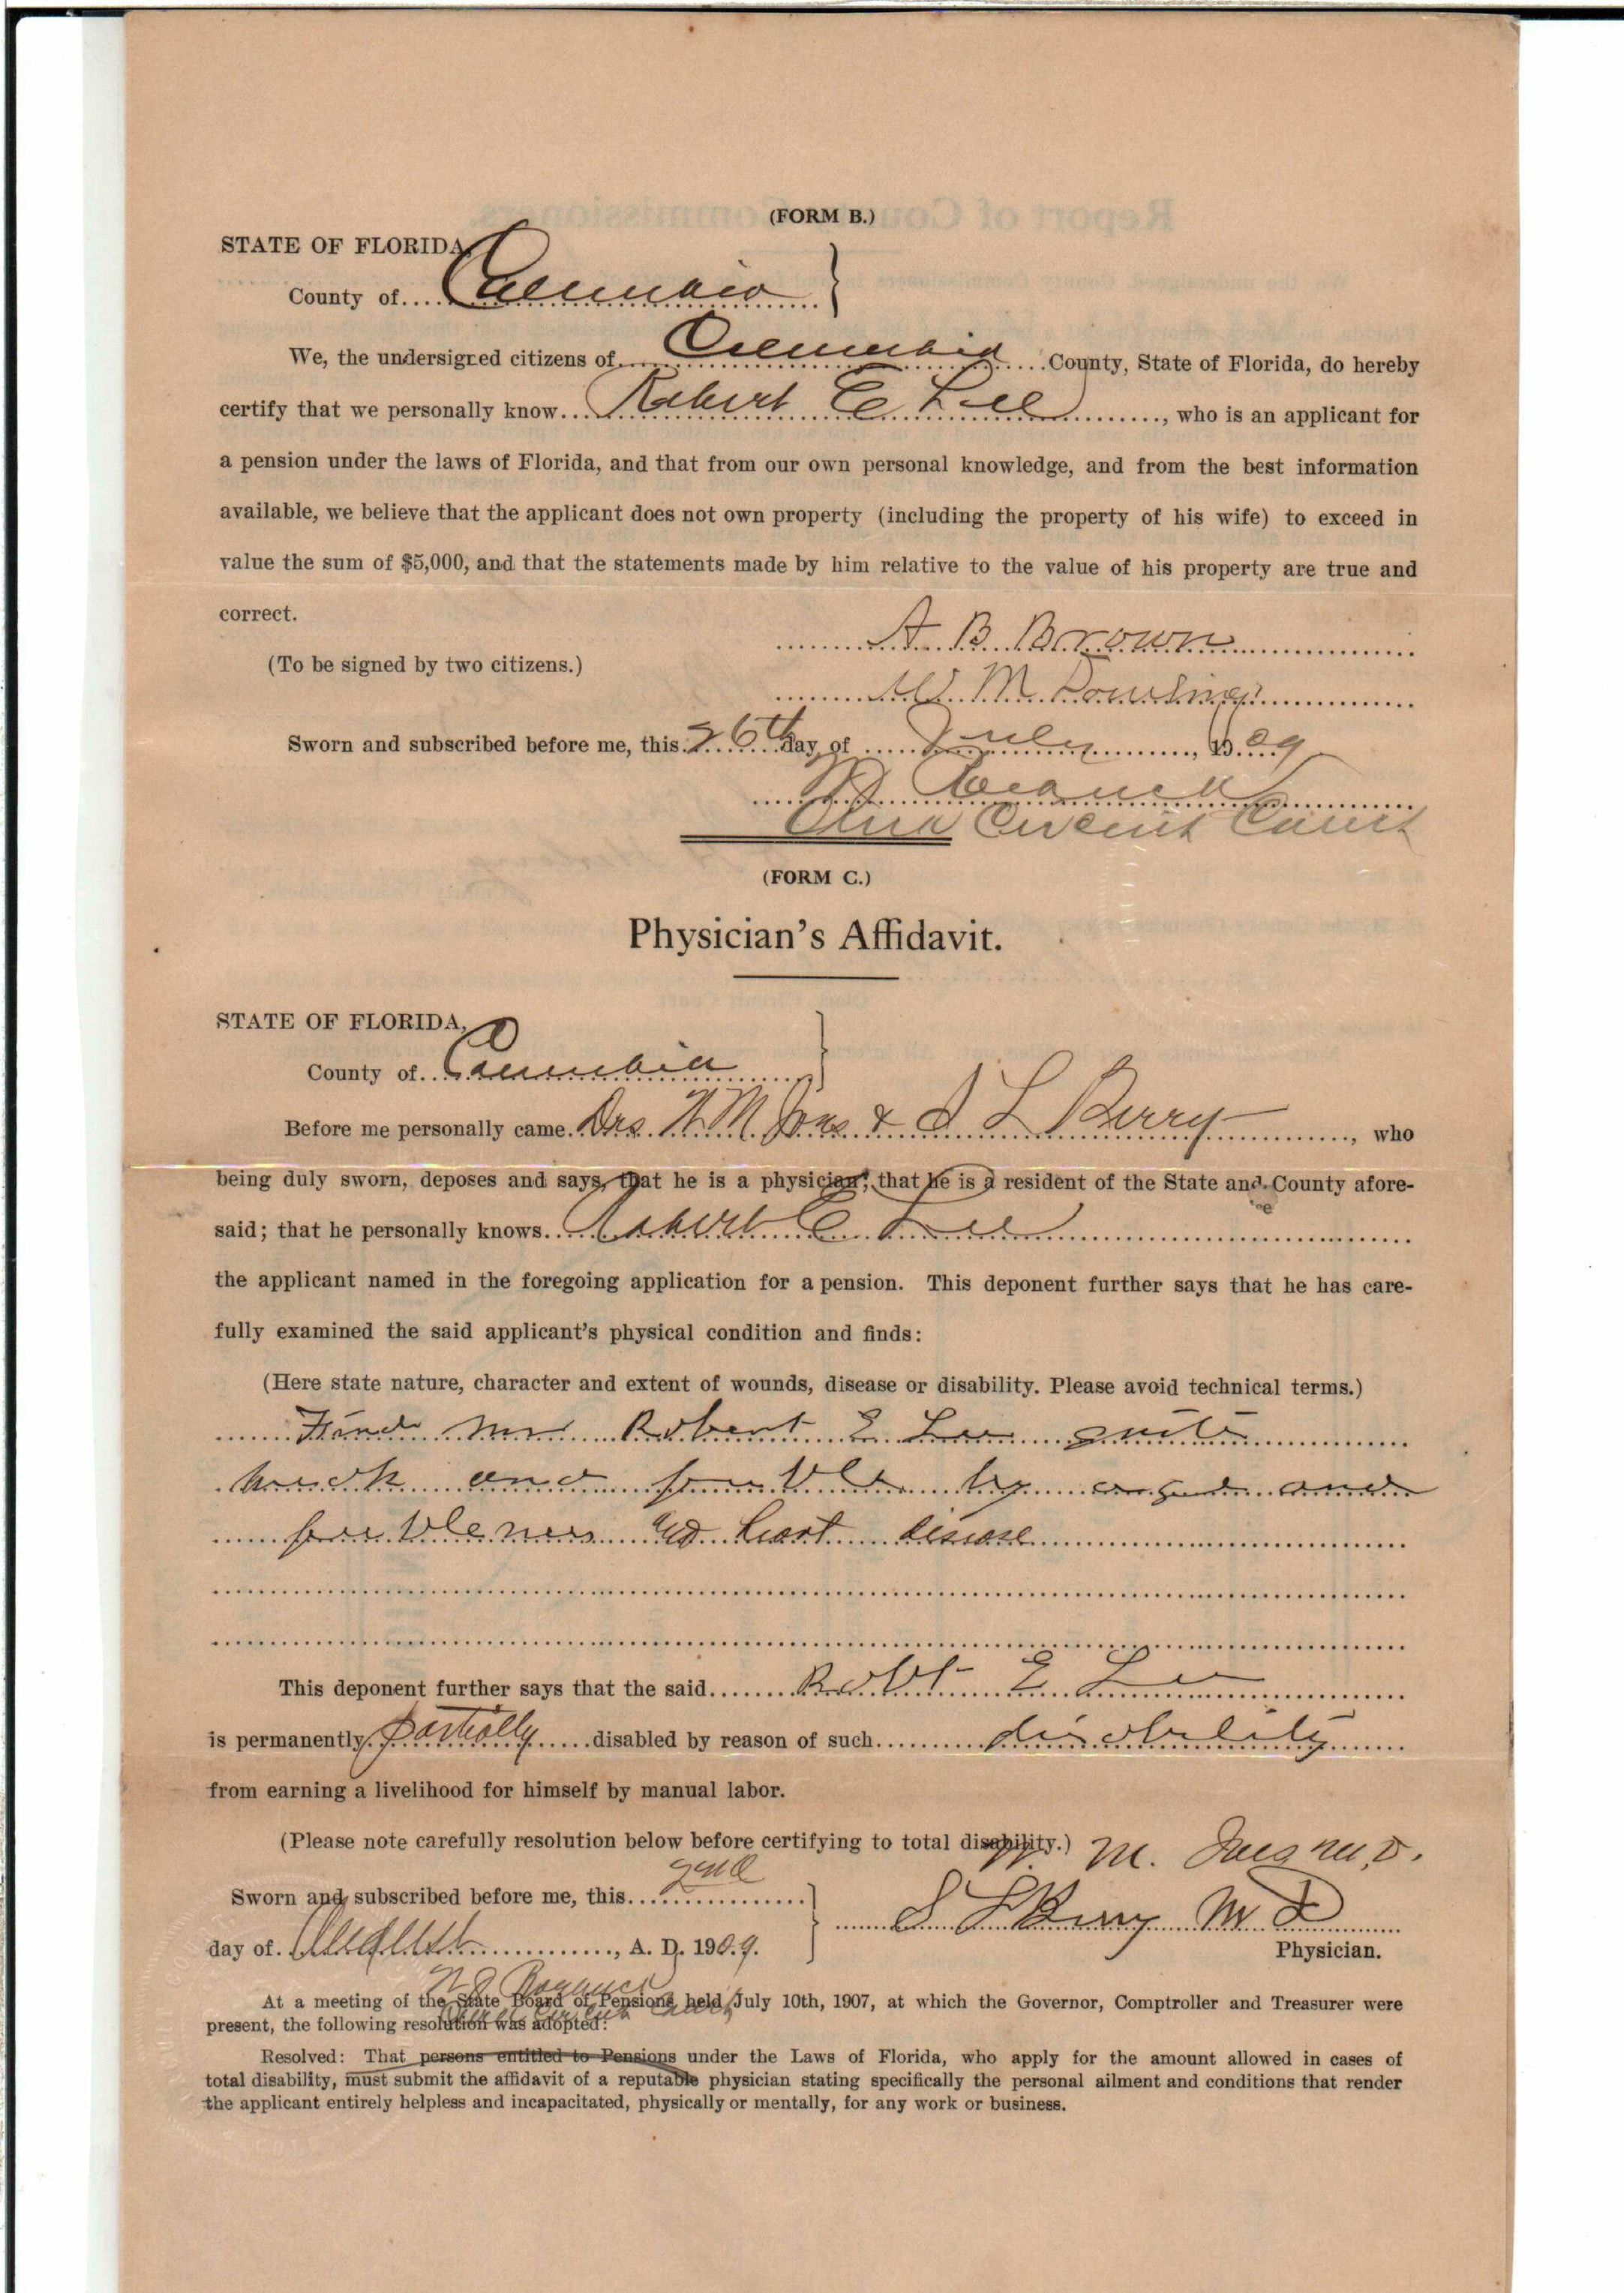 (FORM B.)
STATE OF FLORIDA,
County of....Columbia
We, the undersigned citizens of Columbia County, State of Florida, do hereby
certify that we personally know Robert E Lee, who is an applicant for
a pension under the laws of Florida, and that from our own personal knowledge, and from the best information
available, we believe that the applicant does not own property (including the property of his wife) to exceed in
value the sum of $5,000, and that the statements made by him relative to the value of his property are true and
correct.
A B Brown
(To be signed by two citizens.)
W. M
Sworn and subscribed before me, this 26th day of July, 1909
Circuit Court
(FORM C.)
Physician's Affidavit.
STATE OF FLORIDA,
County of Columbia
Before me personally came Drs. W M Ives & S L Berry, who
being duly sworn, deposes and says, that he is a physician; that he is a resident of the State and County afore-
said; that he personally knows Robert E Lee
the applicant named in the foregoing application for a pension. This deponent further says that he has care-
fully examined the said applicant's physical condition and finds:
(Here state nature, character and extent of wounds, disease or disability. Please avoid technical terms.)
Find Mr Robert E Lee quite
weak and feeble by age and
feebleness heart disease
This deponent further says that the said Robt E Lee
is permanently partially disabled by reason of such disability
from earning a livelihood for himself by manual labor.
(Please note carefully resolution below before certifying to total disability.)
W. M. Ives M.D.
Sworn and subscribed before me, this 2nd
S L Berry M D
day of August, A. D. 1909.
Physician.
At a meeting of the State Board of Pensions held July 10th, 1907, at which the Governor, Comptroller and Treasurer were
present, the following resolution was adopted:
Resolved: That persons entitled to Pensions under the Laws of Florida, who apply for the amount allowed in cases of
total disability, must submit the affidavit of a reputable physician stating specifically the personal ailment and conditions that render
the applicant entirely helpless and incapacitated, physically or mentally, for any work or business.